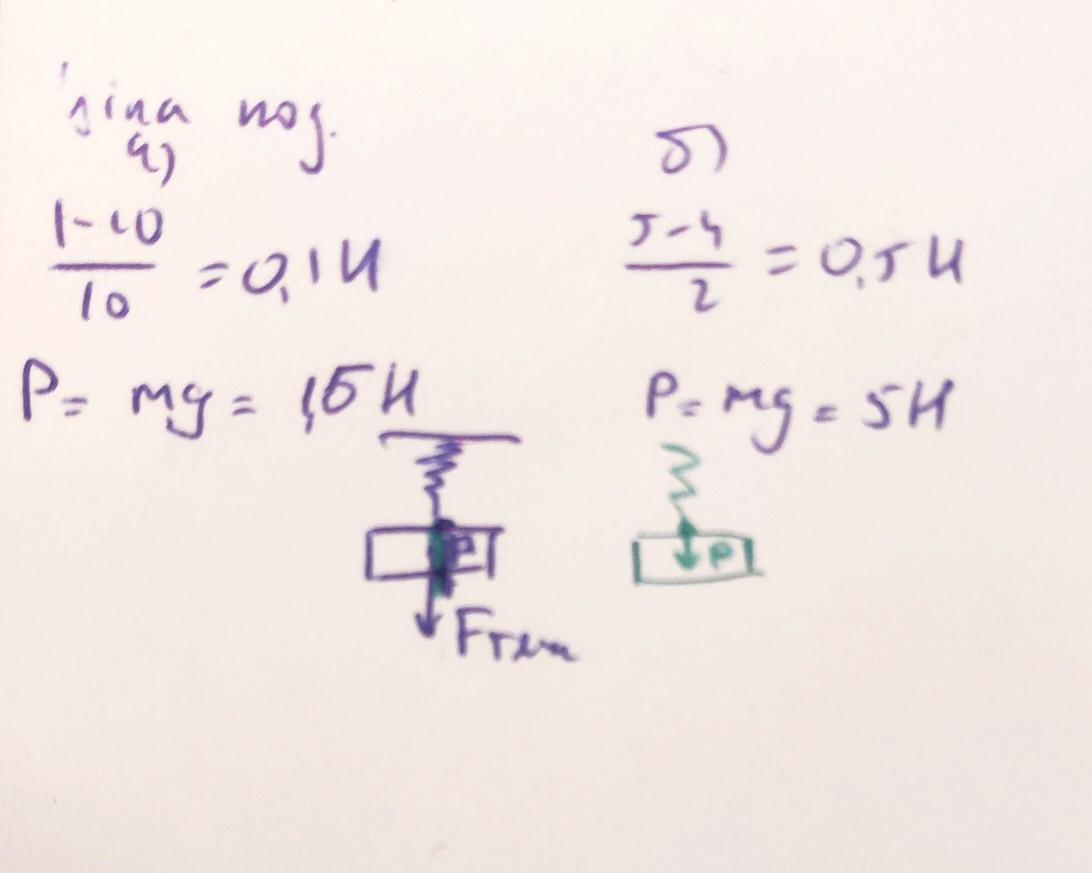 ціна под.
а) б)
1-10/10 = 0,1 Н 5-4/2 = 0,5 Н
P = mg = 1,5 Н P = mg = 5 Н
P P
Fтяж